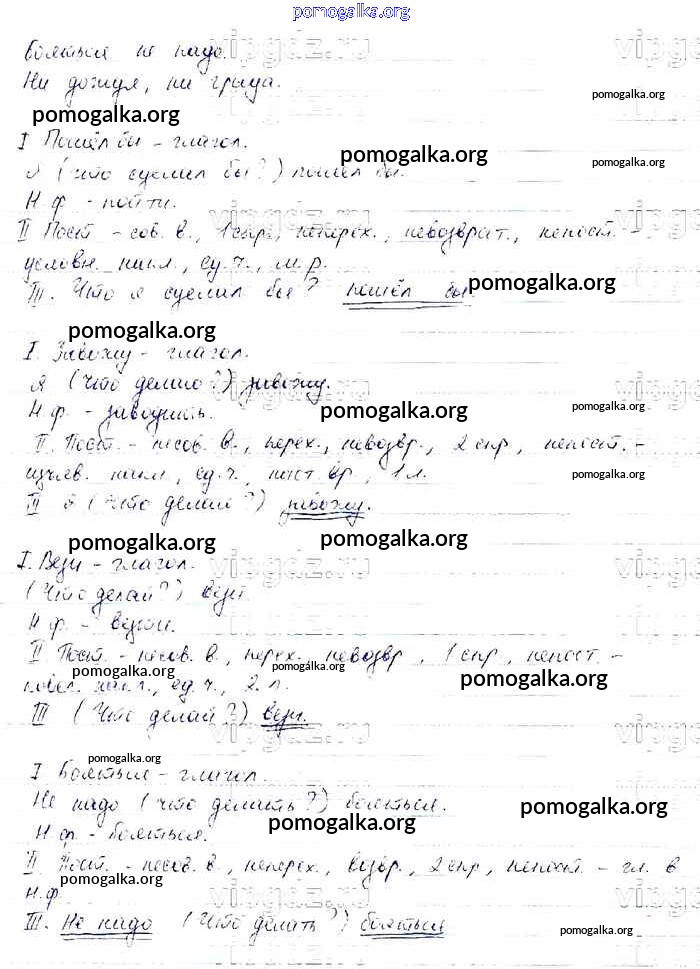 pomogalka.org
vipgdz.ru
Бояться не надо.
Ни дождя, ни града.
pomogalka.org
pomogalka.org
I Пошёл бы - глагол.
pomogalka.org
pomogalka.org
Я (что сделал бы?) пошёл бы.
Н.ф. - пойти.
II Пост - сов. в., 1 спр., неперех., невозврат., непост. -
условн. накл., ед. ч., м.р.
III. Что я сделал бы? пошёл бы.
pomogalka.org
pomogalka.org
I. Завожу - глагол.
я (Что делаю?) завожу.
Н.ф. - заводить.
pomogalka.org
pomogalka.org
II. Пост. - несов. в., перех., невозвр., 2 спр., непост. -
изъяв. накл., ед. ч., наст. вр., 1 л.
pomogalka.org
III Я (Что делаю?) завожу.
pomogalka.org
pomogalka.org
I. Вези - глагол.
vipgdz.ru
(Что делай?) вези
Н.ф. - везти.
II Пост. - несов. в., перех., невозвр., 1 спр., непост. -
pomogalka.org
pomogalka.org
pomogalka.org
повел. накл., ед. ч., 2 л.
III (Что делай?) вези.
vipgdz.ru
pomogalka.org
I Бояться - глагол.
Не надо (что делать?) бояться.
pomogalka.org
pomogalka.org
Н.ф. - бояться.
II Пост. - несов. в., неперех., возвр., 2 спр., непост. - гл. в
pomogalka.org
Н.ф.
III. Не надо (Что делать?) бояться
pomogalka.org